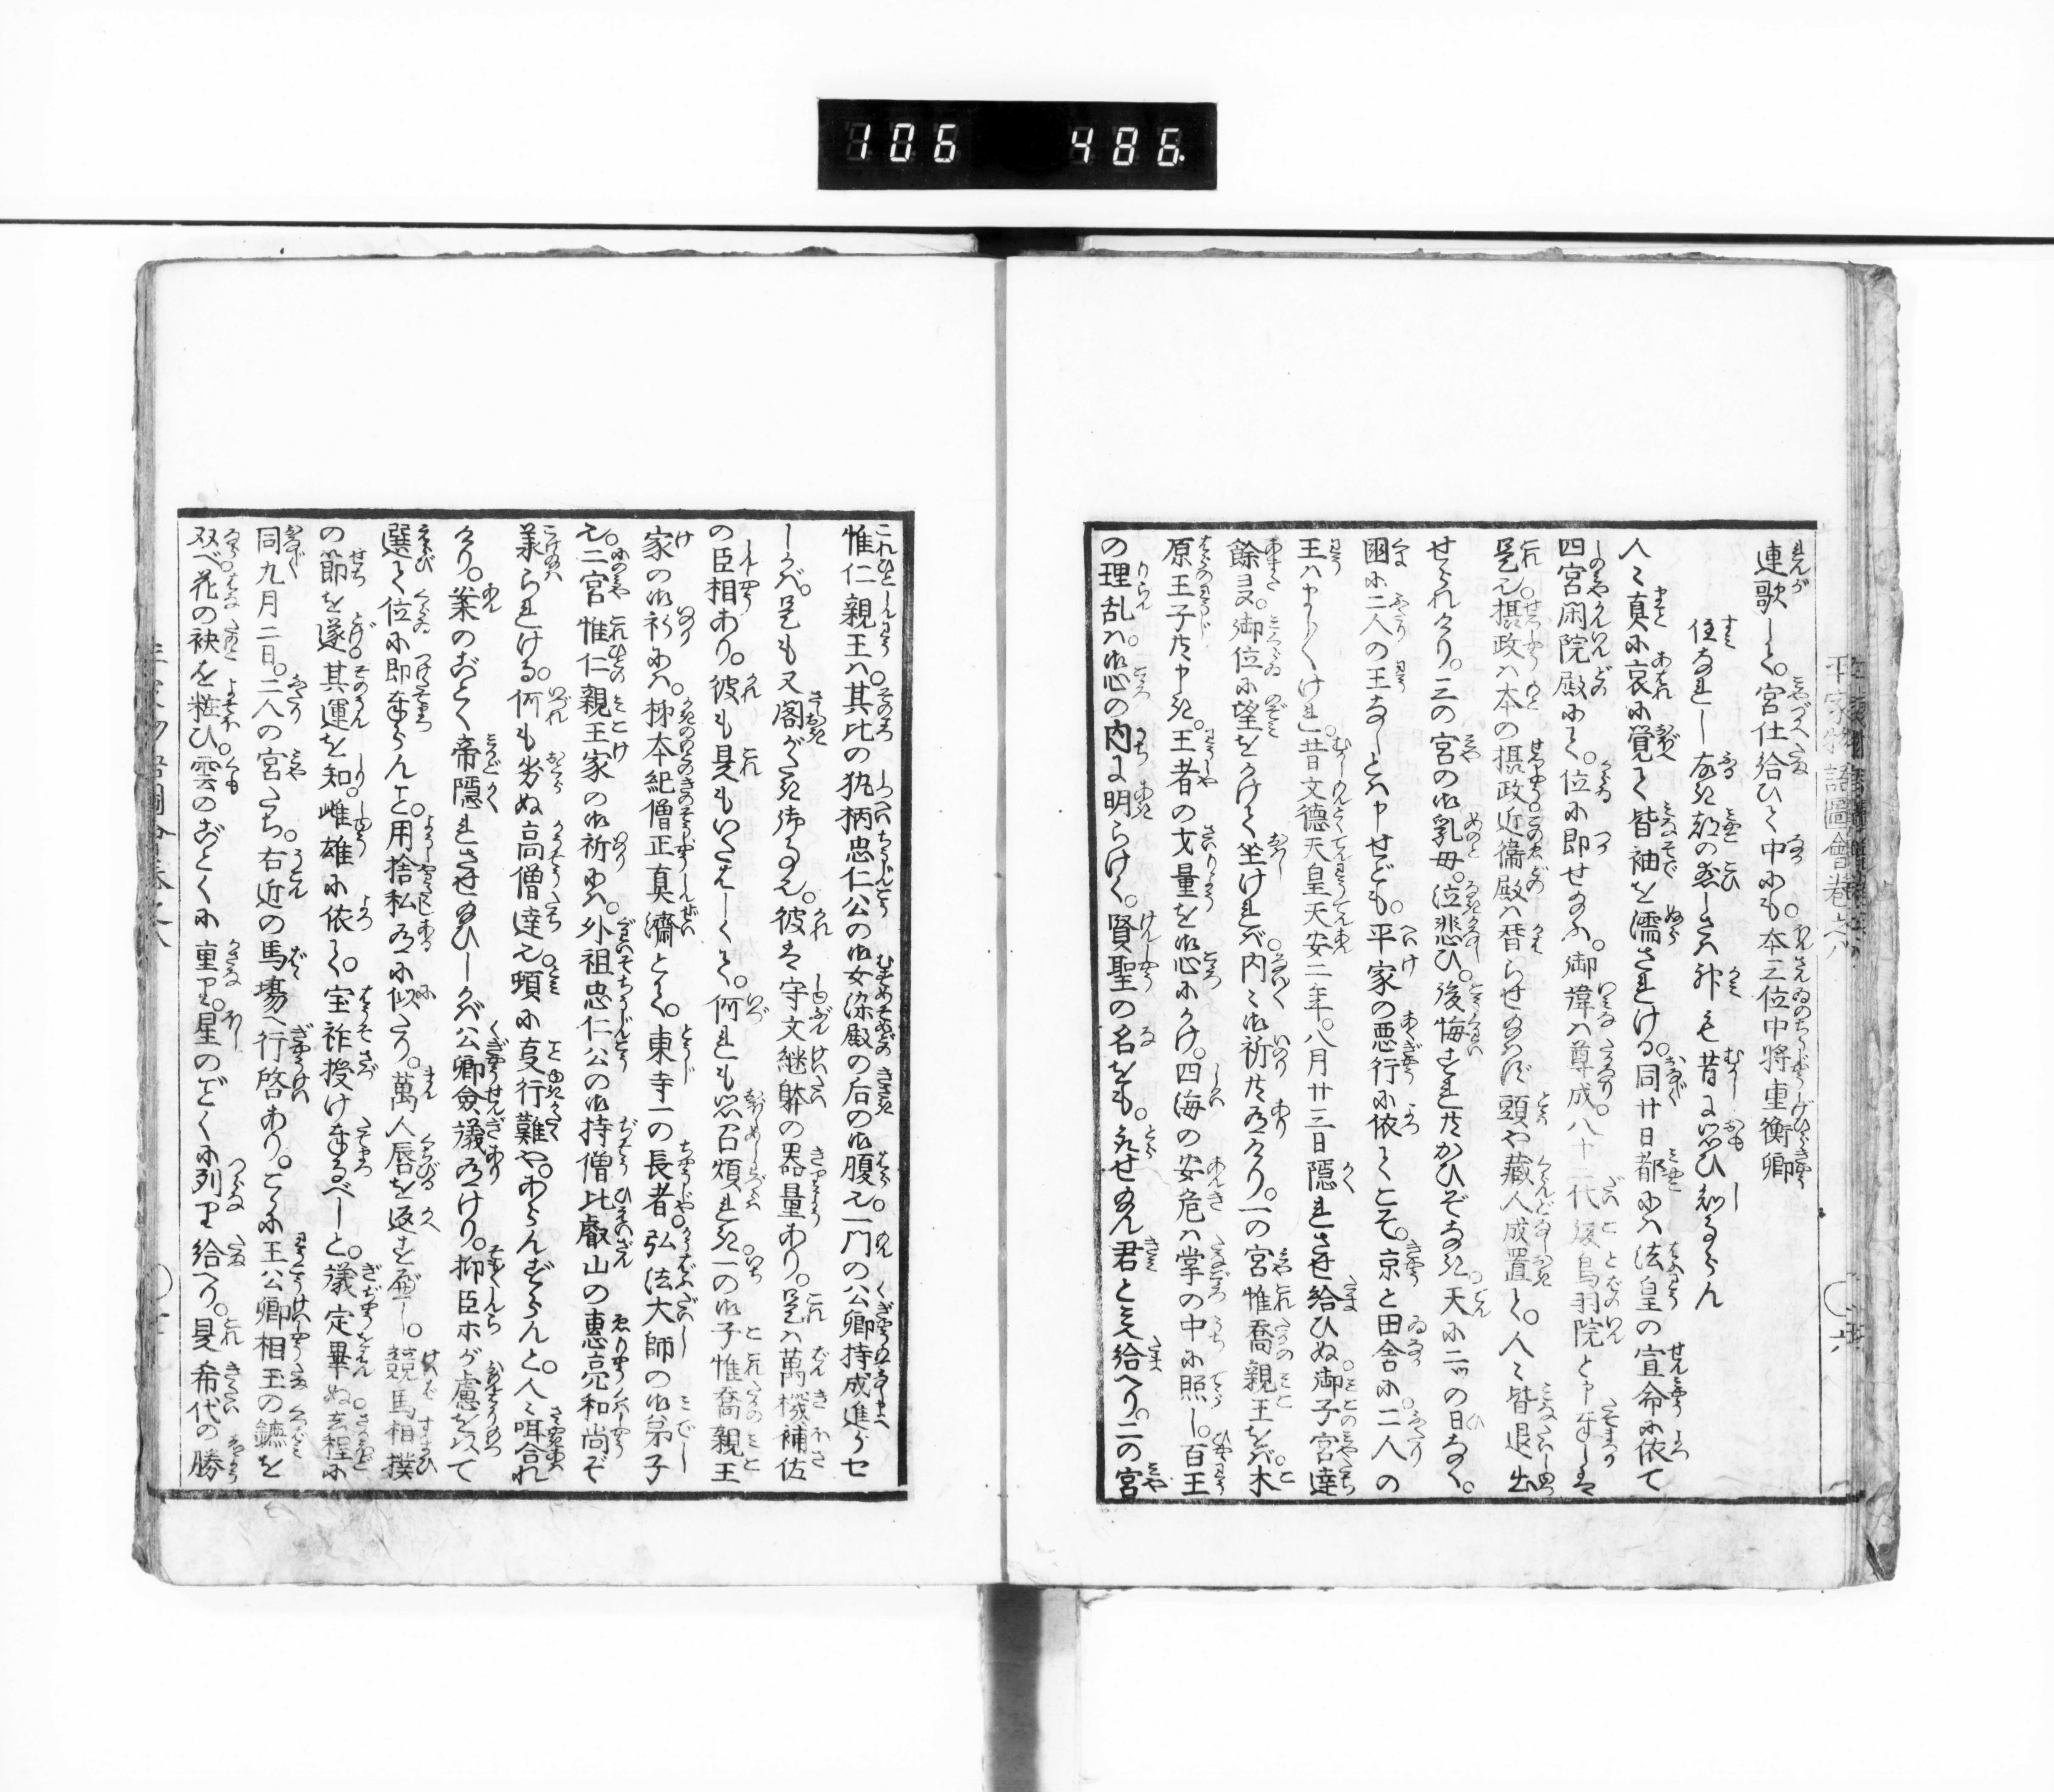 106 486
平家物語圖會卷之八
連歌して。宮仕給ひて中にも。本三位中将重衡卿
住なれし古き都の恋しさハ神も昔に思ひ知るらん
人々真に哀に覚て皆袖を濡されける。同廿日都にハ法皇の宣命に依て
四宮閑院殿にて。位に即せ給ふ。御諱ハ尊成。八十二代後鳥羽院と申奉しは
是也。摂政ハ本の摂政近衛殿ハ替らせ給はず頭や蔵人成置て。人々皆退出
せられけり。三の宮の御乳母。泣悲ひ。後悔すれ共かひぞなき。天に二ッの日なく。
国に二人の王なしとハ申せども。平家の悪行に依てこそ。京と田舎に二人の
王ハましましけれ。昔文徳天皇天安二年。八月廿三日隠れさせ給ひぬ御子宮達
餘ヨ又。御位に望をかけて坐けれバ内々御祈共有けり。一の宮惟喬親王をバ木
原王子共申き。王者の才量を御心にかけ。四海の安危ハ掌の中に照し。百王
の理乱ハ。御心の内に明らけく。賢聖の名をも。取せ給ん君と見え給へり。二の宮
惟仁親王ハ。其比の執柄忠仁公の御女染殿の后の御腹也。一門の公卿持成進らせ
しかバ。是も又閣がたき御事也。彼は守文継躰の器量あり。是ハ萬機補佐
の臣相あり。彼も是もいたはしくて。何れも思召煩れき。一の御子惟喬親王
家の御祈にハ。柿本紀僧正真済とて。東寺一の長者。弘法大師の御弟子
也。二宮惟仁親王家の御祈にハ。外祖忠仁公の御持僧比叡山の恵亮和尚ぞ
承られける。何も劣ぬ高僧達也。頓に事行難や。あらんずらんと。人々咡合れ
けり。案のごとく帝隠れさせ給ひしかバ公卿僉議有けり。抑臣ホが慮を以て
選て位に即奉らんこと。用捨私有に似たり。萬人唇を返すべし。競馬相撲
の節を遂其運を知。雌雄に依て。宝祚授け奉るべしと。議定畢ぬ去程に
同九月二日。二人の宮たち。右近の馬場へ行啓あり。ここに王公卿相玉の鑣を
双べ花の袂を粧ひ。雲のごとくに重り。星のごとくに列り給へり。是希代の勝